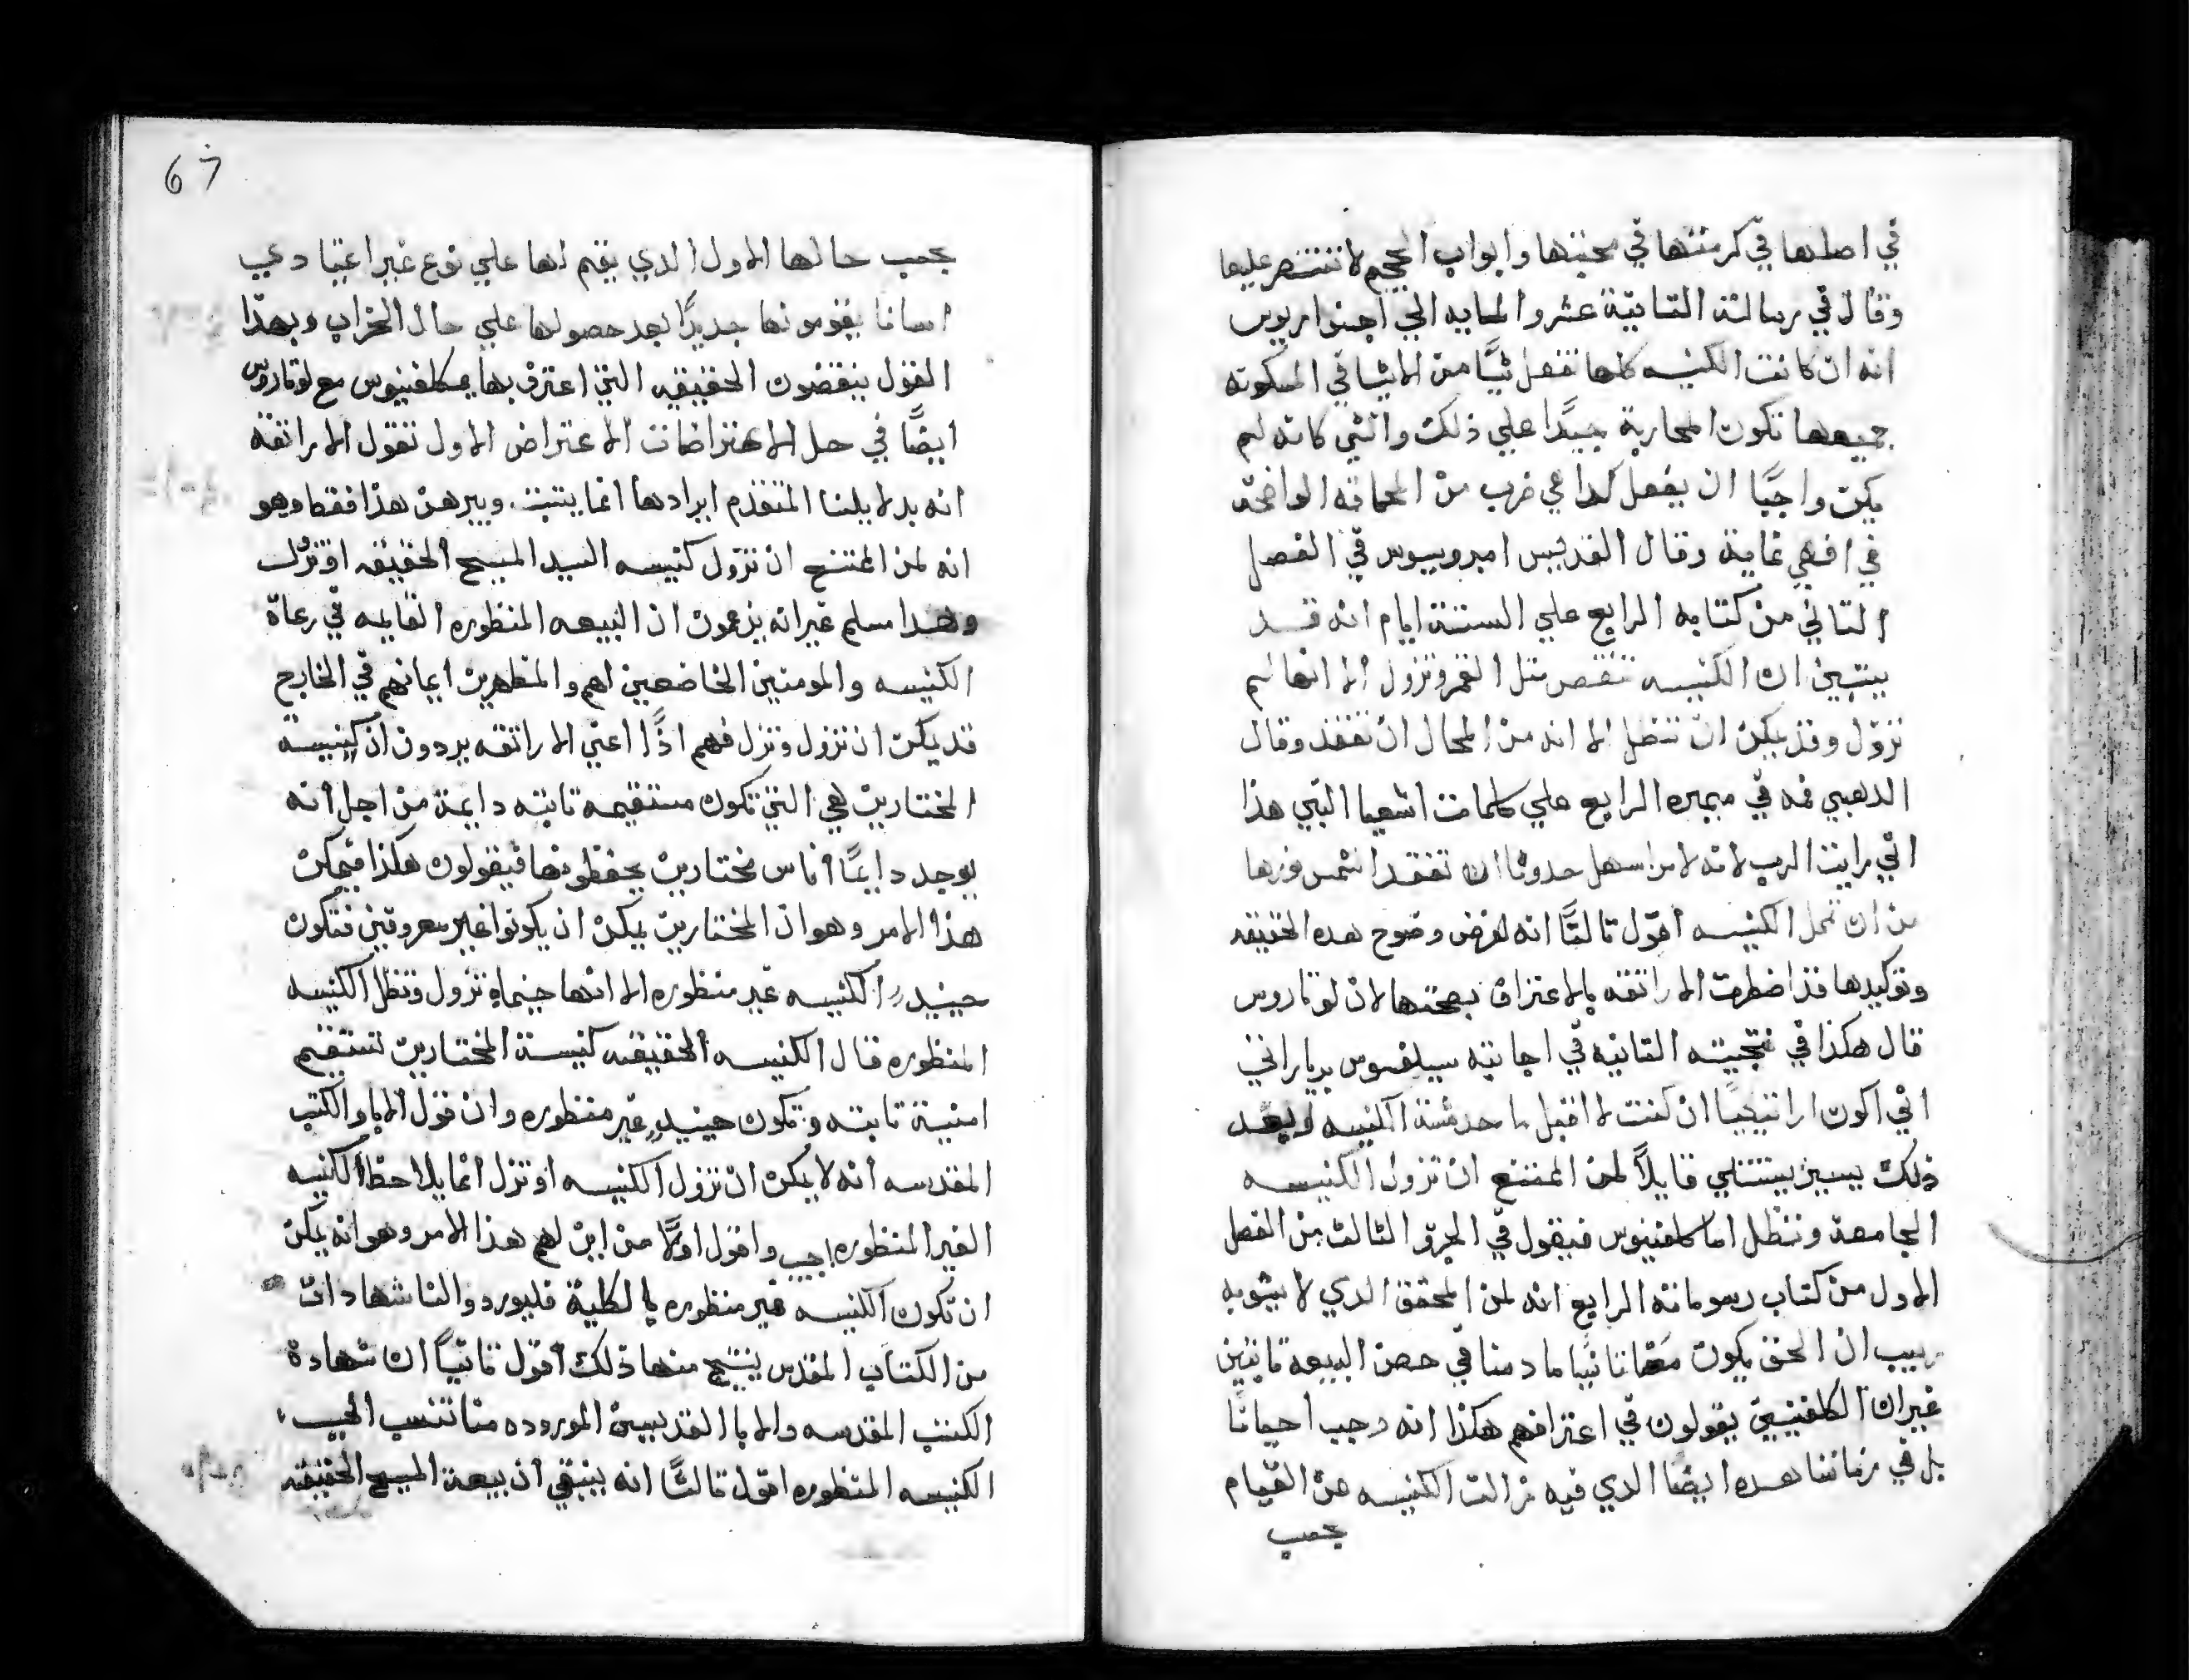 في اصلها في كرمتها في محبتها وابواب الجحيم لا تنتصر عليها
وقال في رسالته التانيه عشر والمايه الي اينواريوس
انه ان كانت الكنيسه كلها تفعل شيًا من الاشيا في المسكونه
جميعها تكون المحاربة جيدًا علي ذلك والشي كانه لم
يكن واجبًا ان يفعل كدا هي ضرب من الحماقه الواضحة
في اقصي غاية وقال القديس امبروسيوس في الفصل
التاني من كتابه الرابع علي الستة ايام انه قد
يتبين ان الكنيسه تنقص متل القمر وتزول الا انها لم
تزول وقد يمكن ان تنظل الا انه من المحال ان تفقد وقال
الدهبي فمه في ميمره الرابع علي كلمات اشعيا النبي هذا
اني رايت الرب لانه لامر اسهل حدوثا ان تفقد الشمس نورها
من ان تمحل الكنيسه اقول تالتًا انه لفرض وضوح هده الحقيقه
وتوكيدها قد اضطرت الاراتقه بالاعتراف بصحتها لان لوتاروس
قال هكذا في نتيجته التانيه في اجابته سيلفسوس برياراني
اني اكون اراتيكيًا ان كنت لا اقبل ما حددته الكنيسه وبعد
ذلك بيسير يستتلي قايلاً لمن الممتنع ان تزول الكنيسه
الجامعة وتنظل اما كلفينوس فيقول في الجزو الثالث من الفصل
الاول من كتاب رسوماته الرابع انه لمن المحقق الدي لا يشوبه
ريب ان الحق يكون معنا تابتًا ما دمنا في حضن البيعه تابتين
غيران الكلفينيين يقولون في اعترافهم هكذا انه وجب احيانًا
بل في زماننا هده ايضًا الدي فيه زالت الكنيسه عن القيام
بحسب
67
بحسب حالها الاول الدي يقيم لها علي نوع غير اعتيادي
اسانا يقومونها جديدًا بعد حصولها علي حال الخراب وبهدا
القول ينقضون الحقيقه التي اعترف بها كلفينوس مع لوتاروس
ايضًا في حل الاعتراضات الاعتراض الاول تقول الاراتقه
انه بدلايلنا المتقدم ايرادها انما يتبت ويبرهن هدا فقط وهو
انه لمن الممتنع ان تزول كنيسه السيد المسيح الحقيقه او تزل
وهدا مسلم غيرانه يزعمون ان البيعه المنظوره القايمه في رعاة
الكنيسه والمومنين الخاضعين لهم والمظهرين ايمانهم في الخارج
قد يمكن ان تزول وتزل فهم اذًا اعني الاراتقه يردون ان كنيسة
المختارين هي التي تكون مستقيمه تابته دايمة من اجل انه
يوجد دايمًا اناس مختارين يحفظونها فيقولون هكذا فيمكن
هذا الامر وهو ان المختارين يمكن ان يكونوا غير معروفين فتكون
حينيدٍ الكنيسه غير منظوره الا انها حينما تزول وتظل الكنيسه
المنظوره قال الكنيسه الحقيقه كنيسة المختارين تستقيم
امنية تابته وتكون حينيدٍ غير منظوره وان قول الابا والكتب
المقدسه انه لا يمكن ان تزول الكنيسه او تزل انما يلاحظ الكنيسه
الغير المنظوره اجيب واقول اولًا من اين لهم هذا الامر وهو انه يمكن
ان تكون الكنيسه غير منظوره بالكلية فليوردوا لنا شهادات
من الكتاب المقدس ينتج منها ذلك اقول تانيًا ان شهادة
الكتب المقدسه والابا القديسين الموروده منا تنسب الي
الكنيسه المنظوره اقول تالتًا انه ينبغي ان بيعة المسيح الحقيقه